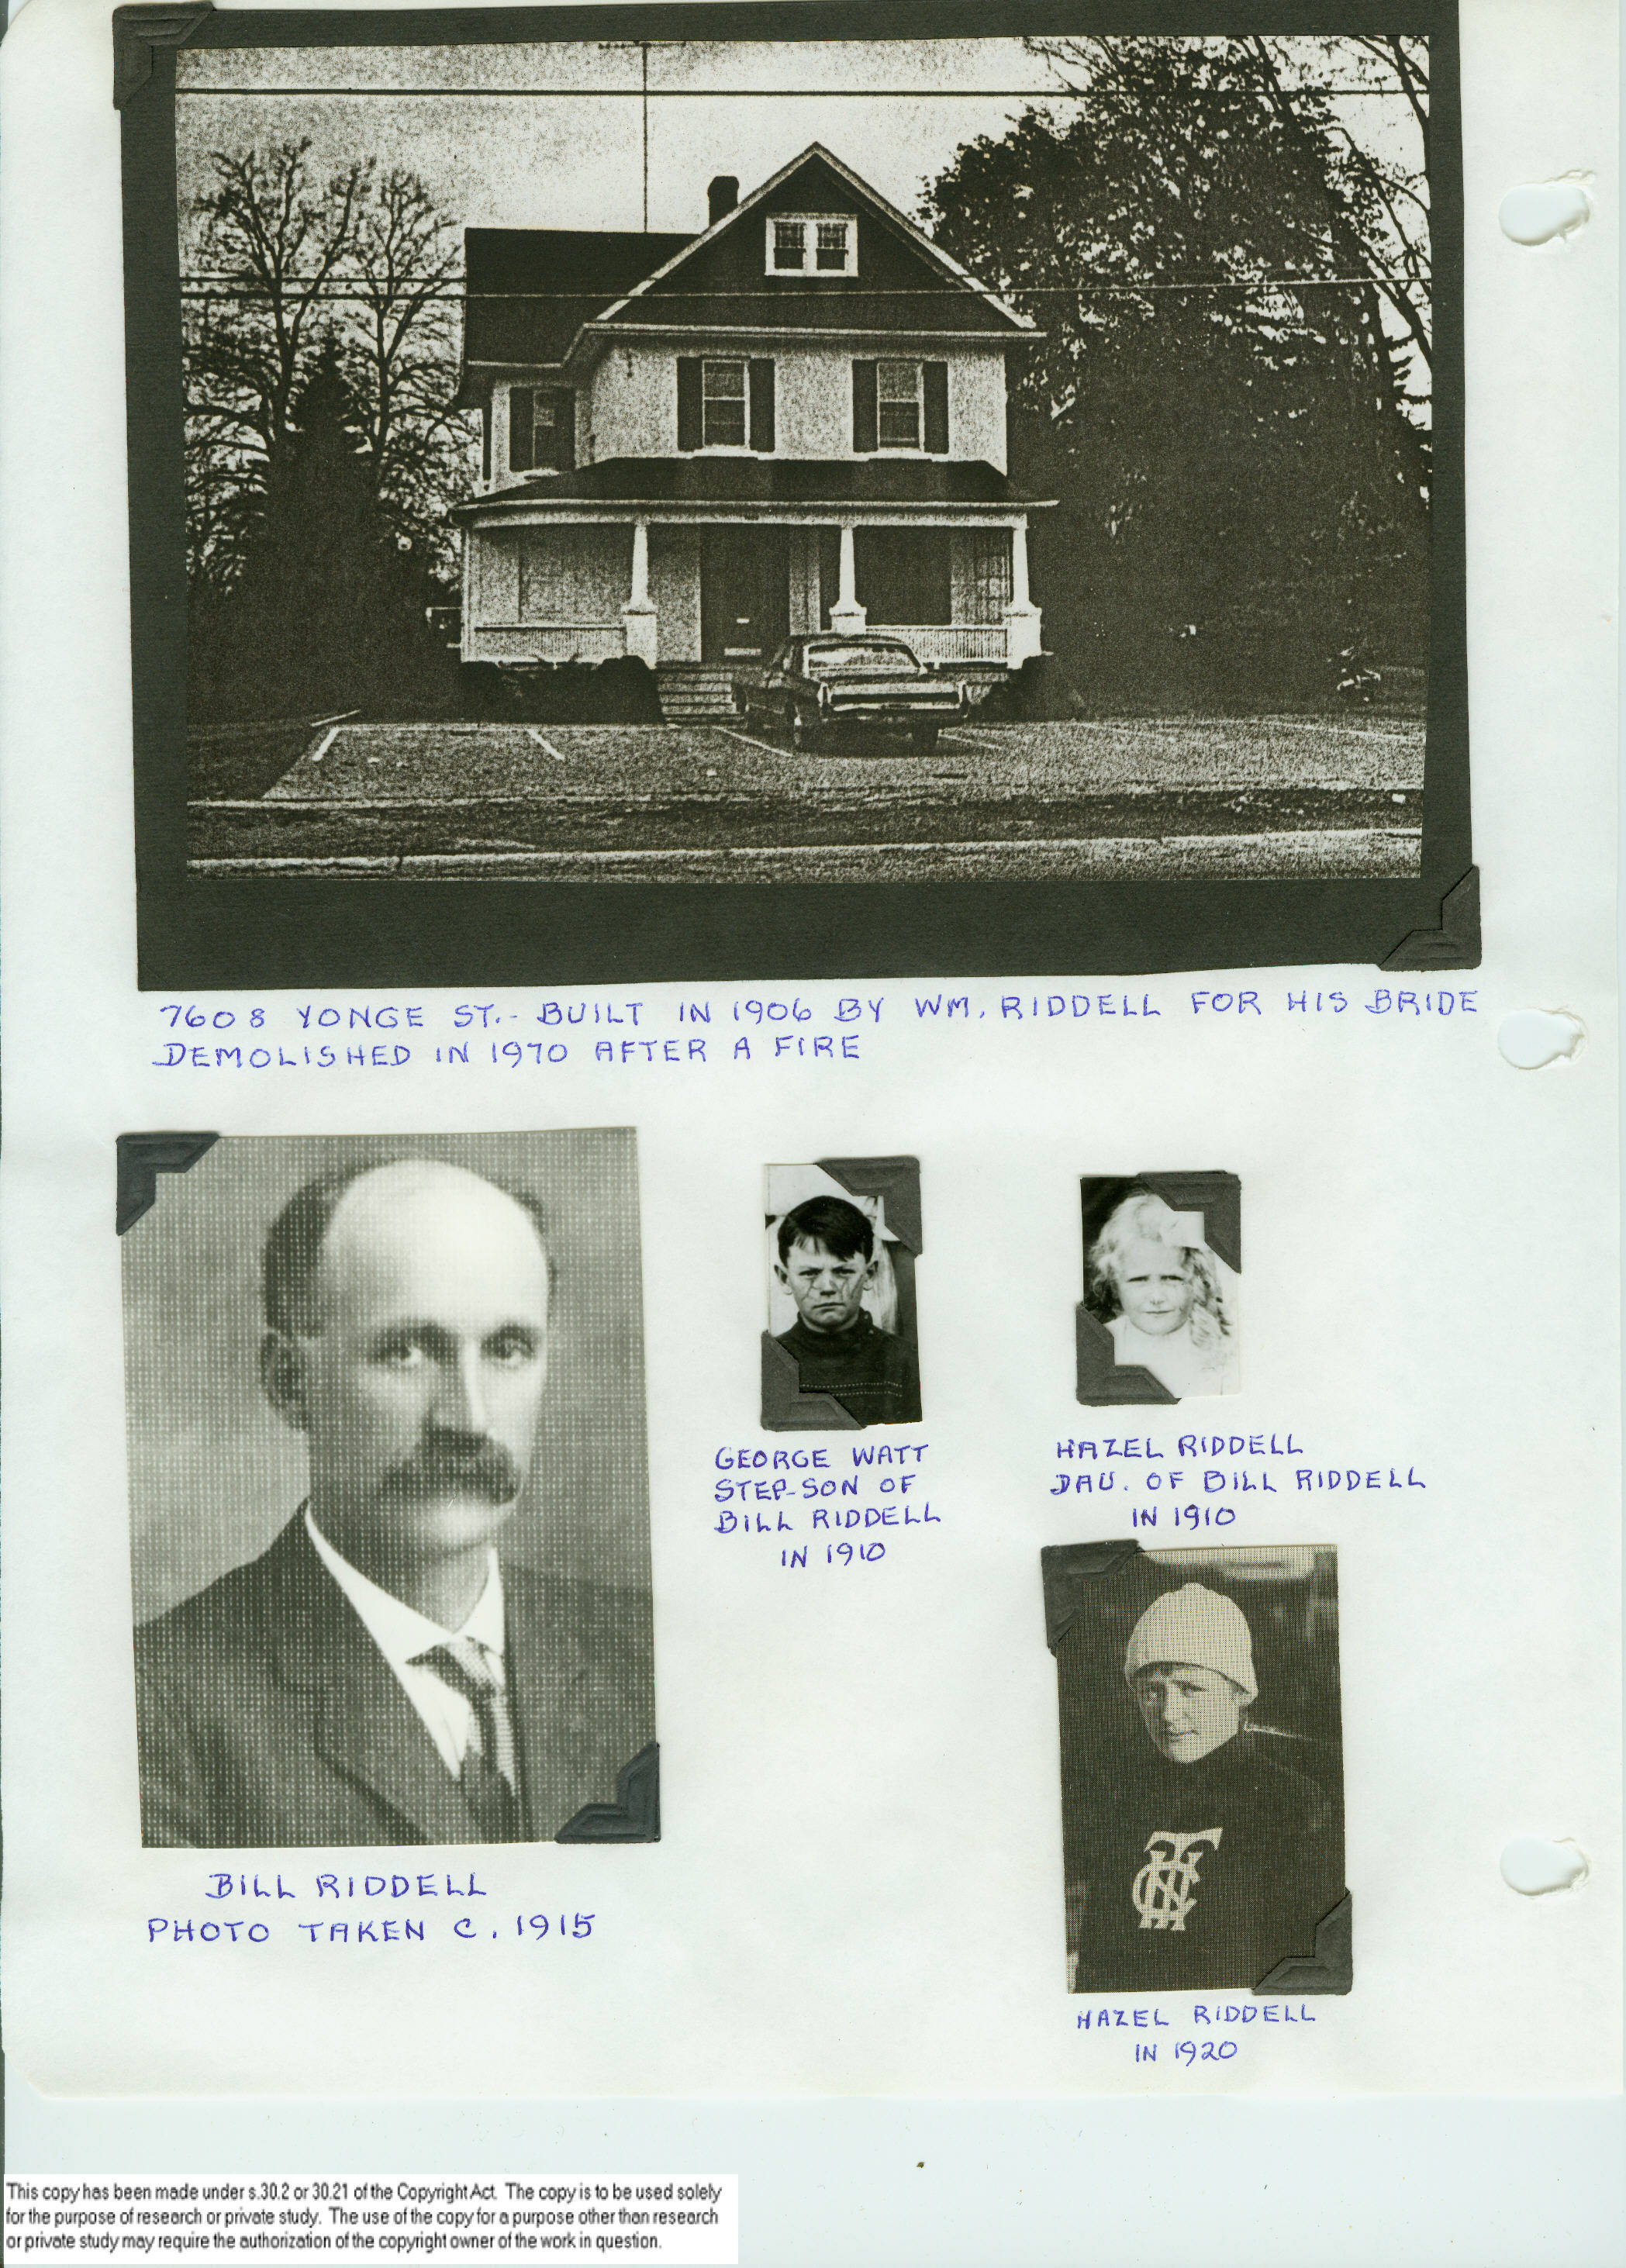 7608 YONGE ST.- BUILT IN 1906 BY WM. RIDDELL FOR HIS BRIDE
DEMOLISHED IN 1970 AFTER A FIRE
GEORGE WATT
STEP-SON OF
BILL RIDDELL
IN 1910
HAZEL RIDDELL
DAU. OF BILL RIDDELL
IN 1910
BILL RIDDELL
PHOTO TAKEN C. 1915
HAZEL RIDDELL
IN 1920
This copy has been made under s.30.2 or 30.21 of the Copyright Act. The copy is to be used solely
for the purpose of research or private study. The use of the copy for a purpose other than research
or private study may require the authorization of the copyright owner of the work in question.